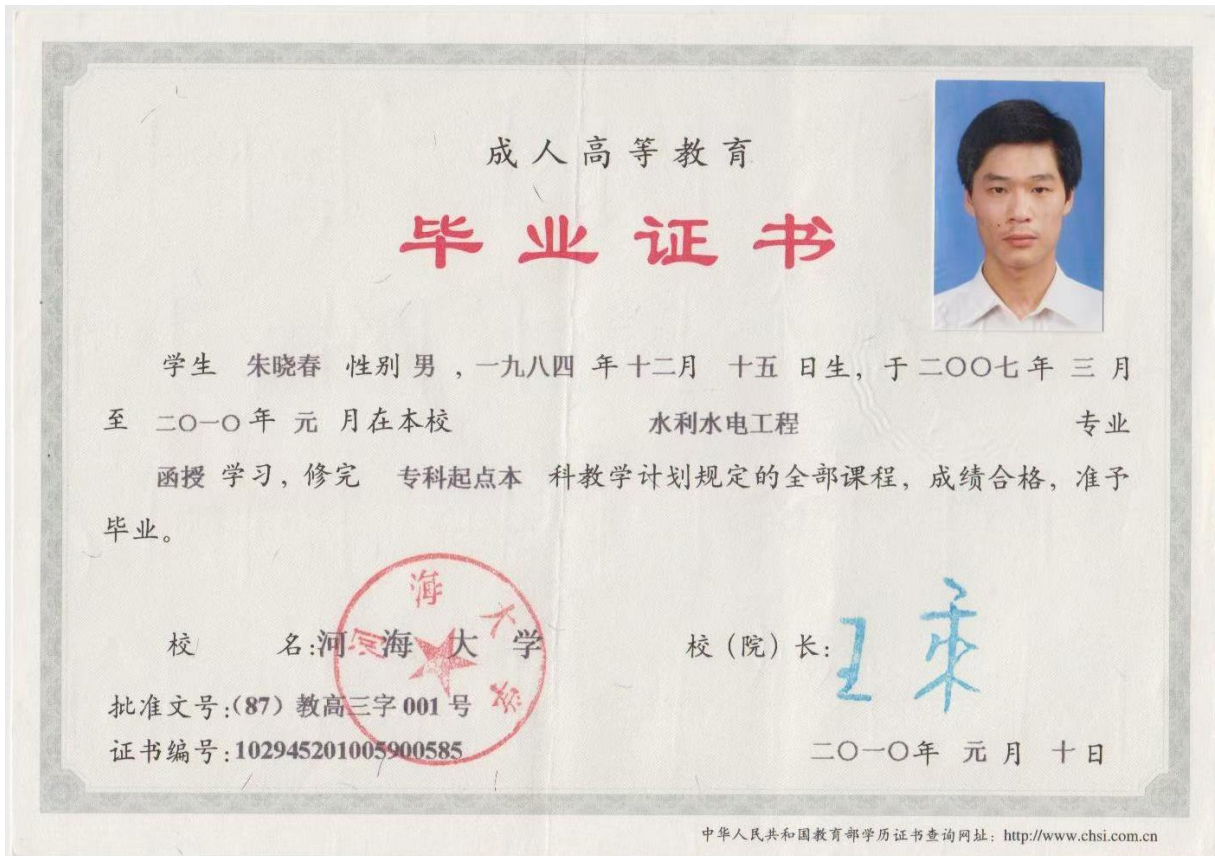 成人高等教育
毕业证书
学生 朱晓春 性别 男 ，一九八四 年 十二月 十五 日生，于 二〇〇七 年 三 月
至 二〇一〇 年 元 月在本校 水利水电工程 专业
函授 学习，修完 专科起点本 科教学计划规定的全部课程，成绩合格，准予
毕业。
河海大学
校 名:河 海 大 学 校（院）长:
批准文号:（87）教高三字 001 号
证书编号:102945201005900585 二〇一〇年 元 月 十 日
中华人民共和国教育部学历证书查询网址：http://www.chsi.com.cn